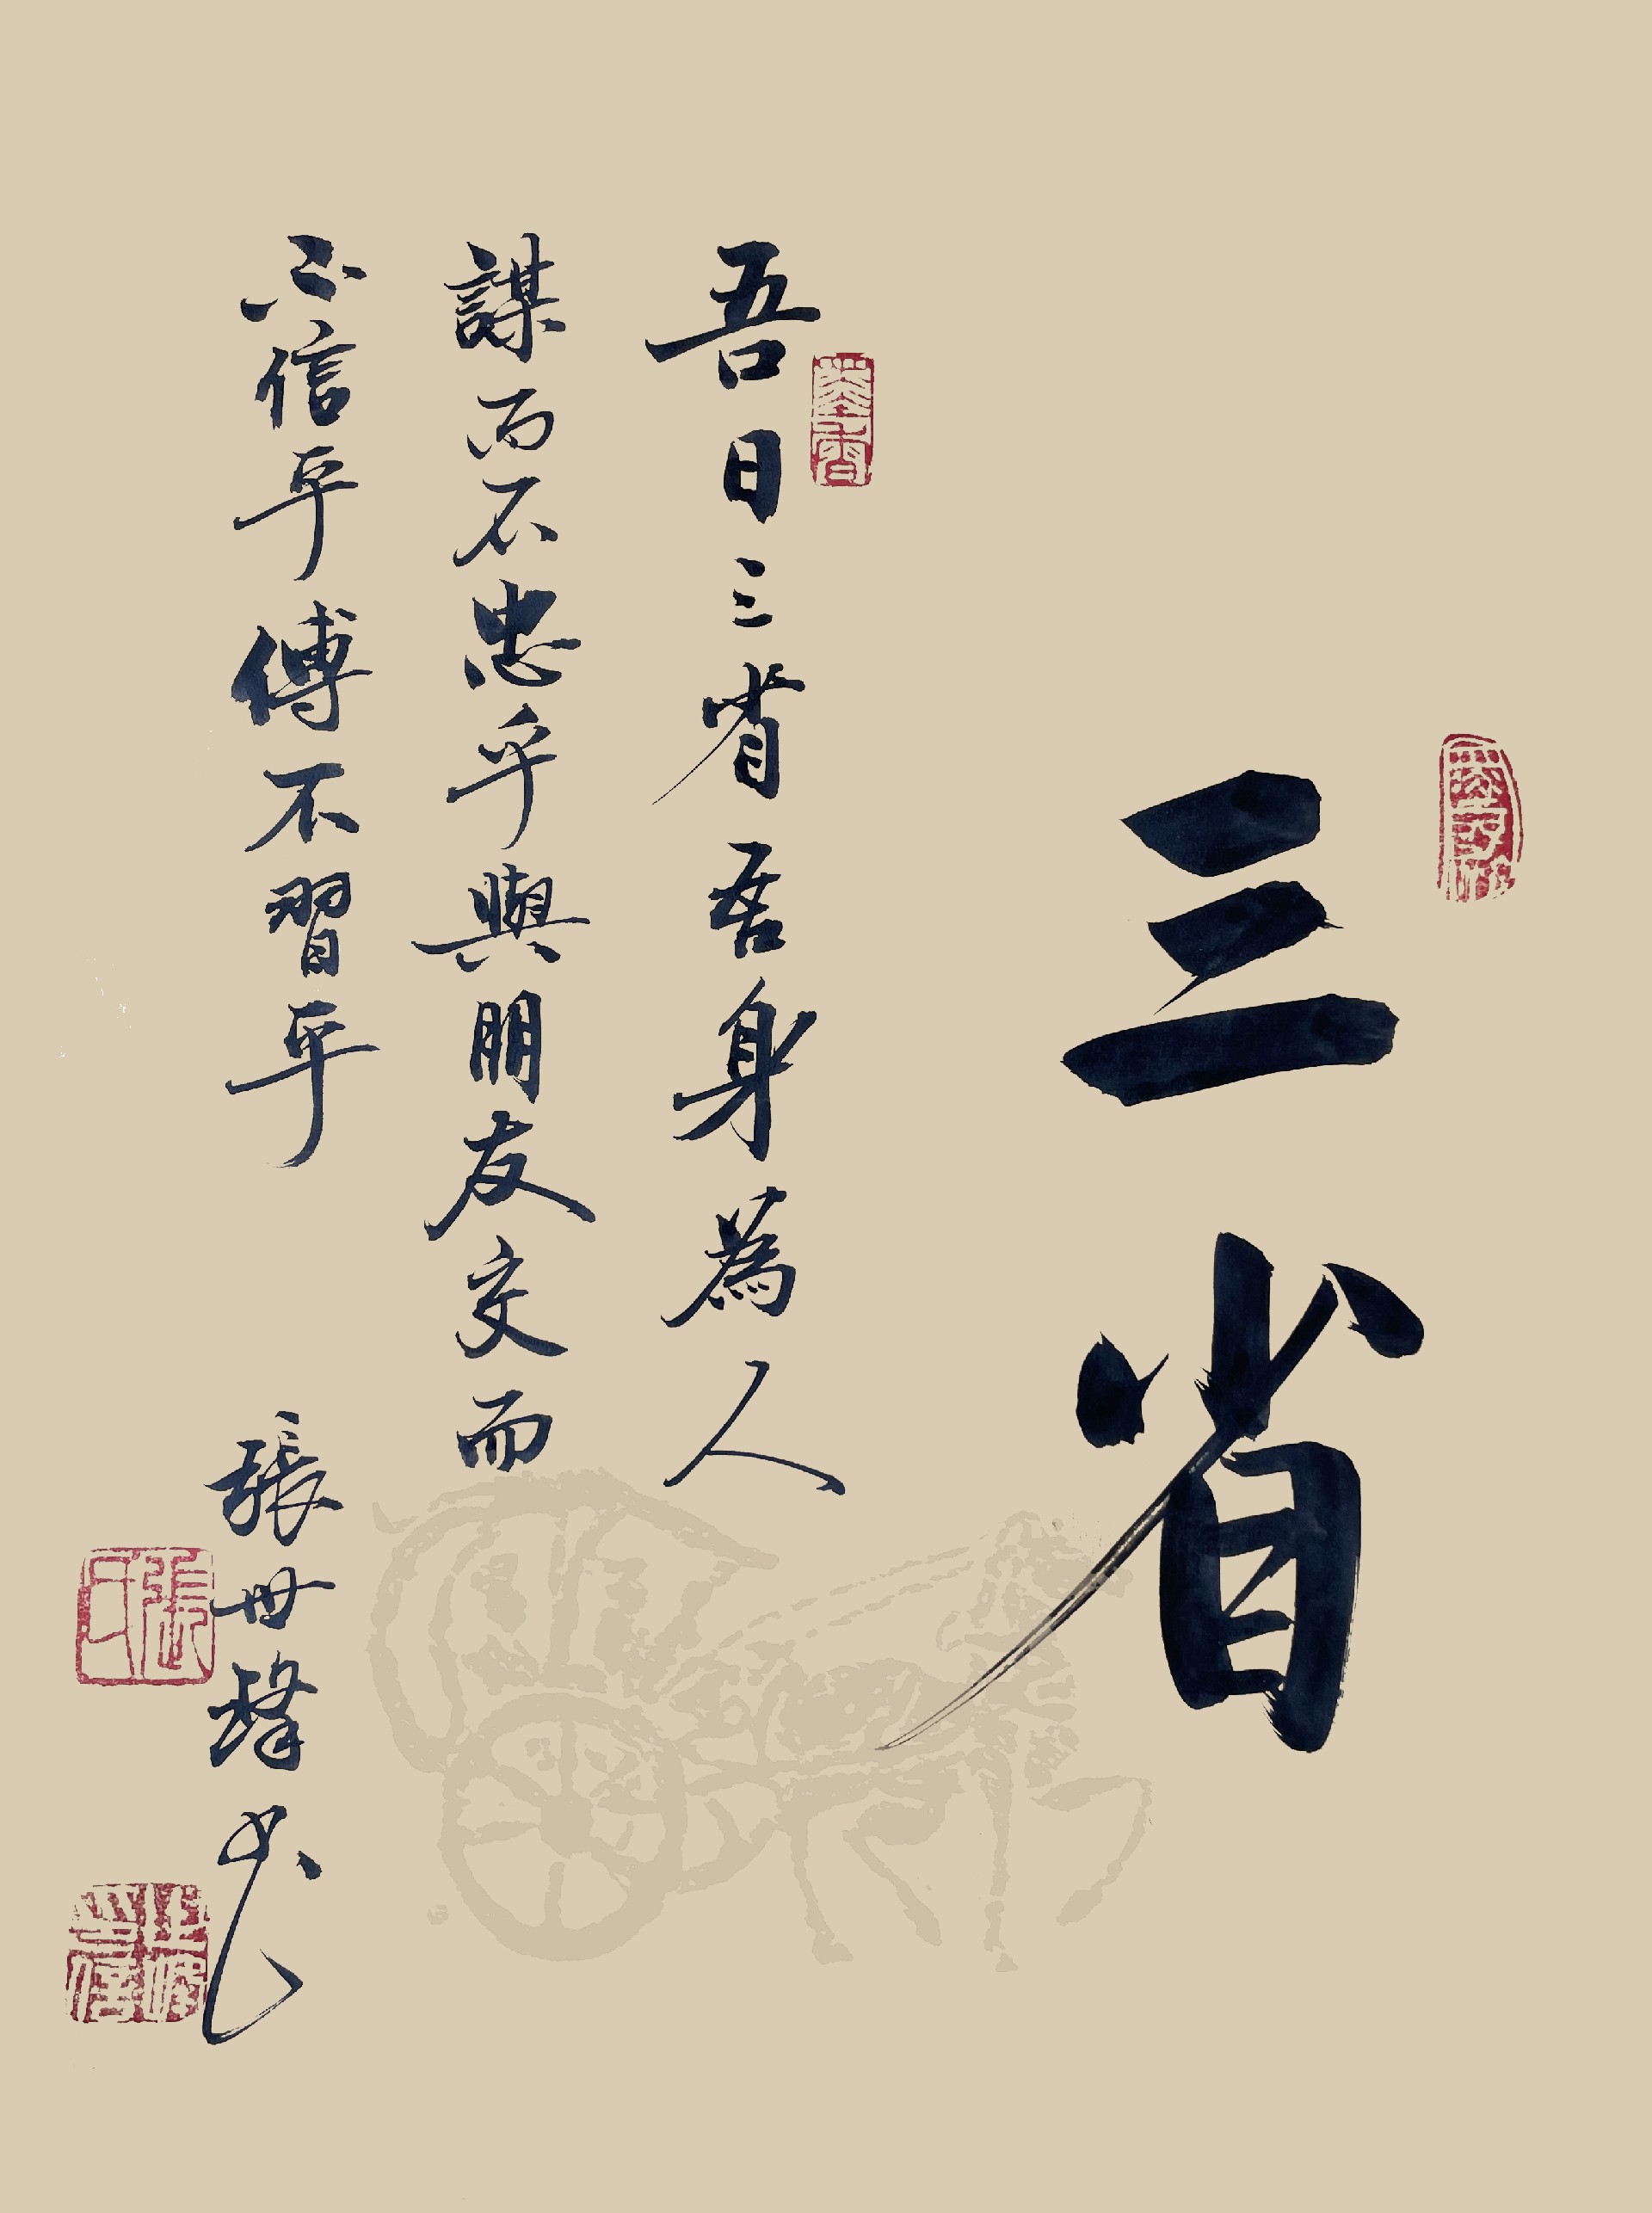 三省
墨香
吾日三省吾身為人
謀而不忠乎與朋友交而
不信乎傳不習乎
張世 书